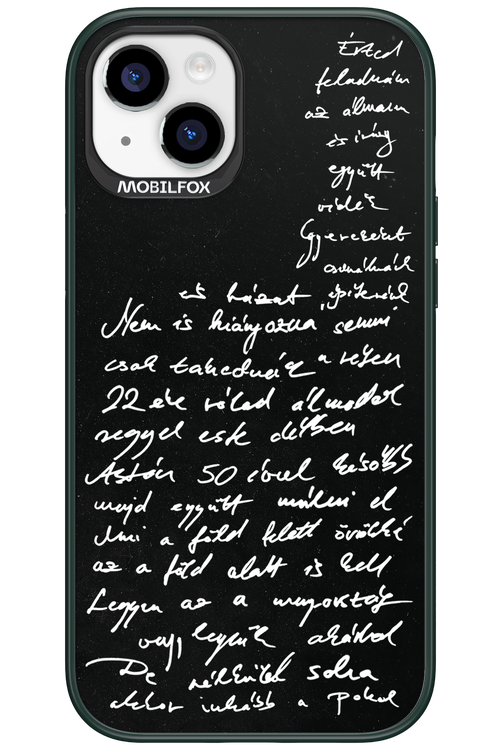 Érted
feladnám
az álmaim
és így
együtt
vidék
Gyerekeket
csinálnánk
és házat építenénk
MOBILFOX
Nem is hiányozna semmi
csak takednék a
22 éve rólad álmodok
reggel este délben
Aztán 50 évvel később
majd együtt múlni el
Ami a föld felett örökké
az a föld alatt is kell
Legyen az a mennyország
vagy legyünk akárhol
De nélküled soha
akkor inkább a Pokol